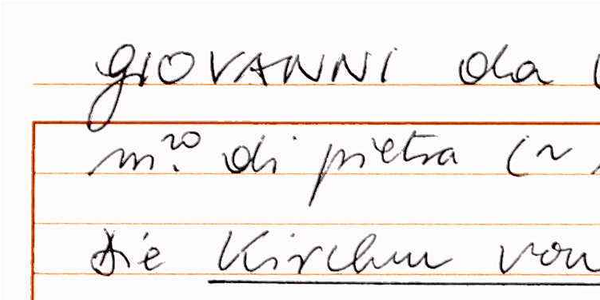 GIOVANNI da (
m.ro di pietra (~
die Kirchen von